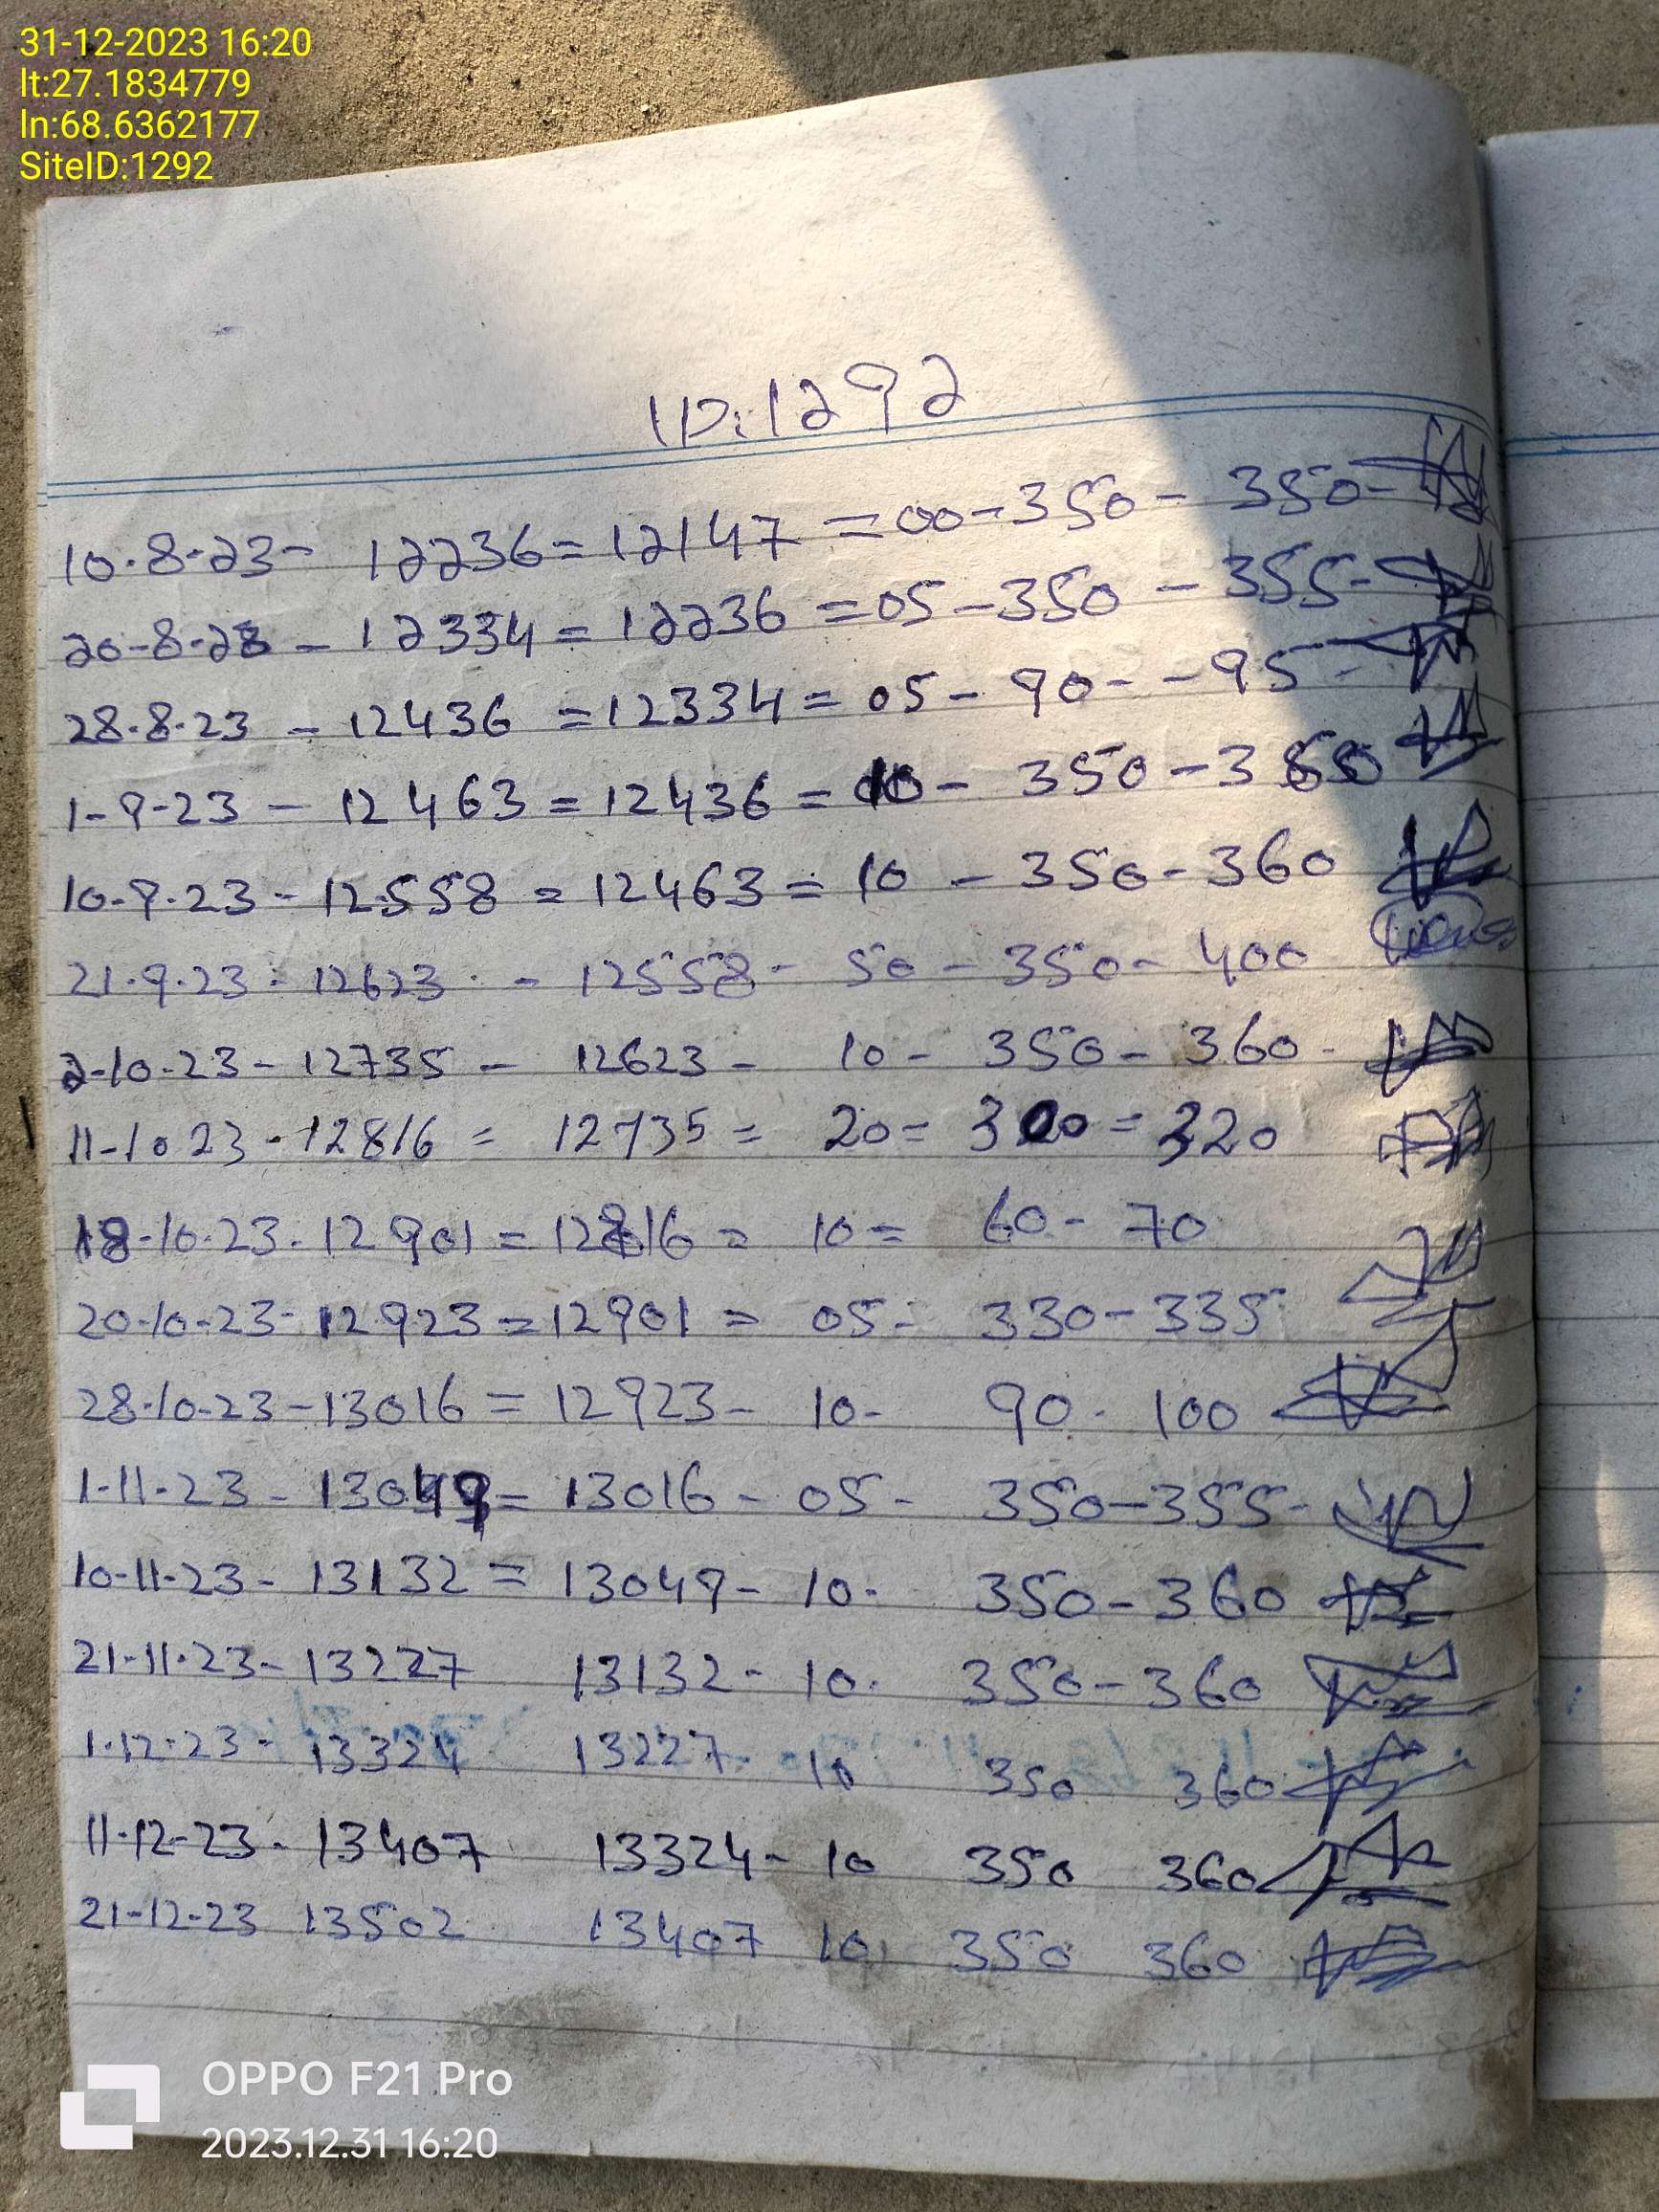 31-12-2023 16:20
lt:27.1834779
ln:68.6362177
SiteID:1292
ID:1292
10.8-23- 12236=12147=00-350-350-
20-8-23 - 12334=12236=05-350-355-
28.8.23 - 12436=12334=05-90--95-
1-9-23 - 12463=12436=10-350-360
10-9.23-12558=12463=10-350-360
21.9.23- 12623 - 12558-50-350-400
2-10-23-12735-12623-10-350-360-
11-10 23-12816=12735=20=300=320
18-10-23-12901=12816=10=60-70
20-10-23-12923=12901=05-330-335
28-10-23-13016=12923-10-90-100
1-11-23-13049=13016-05-350-355-
10-11-23-13132=13049-10-350-360
21-11-23-13227 13132-10. 350-360
1.12.23-13324 13227 10 350 360
11-12-23-13407 13324-10 350 360
21-12-23 13502 13407 10 350 360
OPPO F21 Pro
2023.12.31 16:20